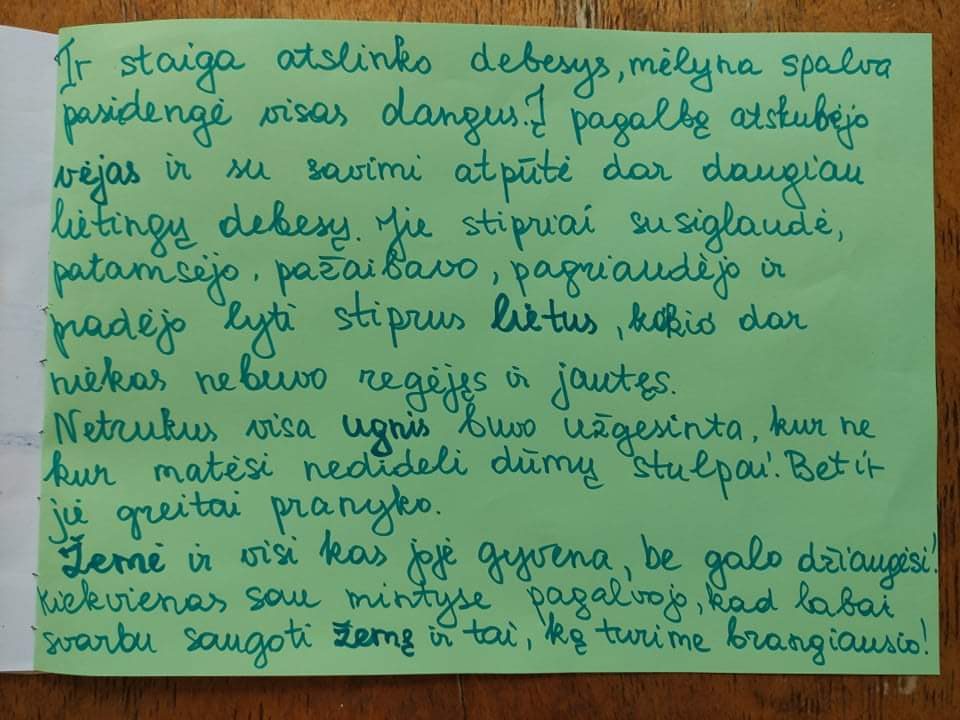 Ir staiga atslinko debesys, mėlyna spalva
pasidengė visas dangus. Į pagalbą atskubėjo
vėjas ir su savimi atpūtė dar daugiau
lietingų debesų. Jie stipriai susiglaudė,
patamsėjo, pažaibavo, pagriaudėjo ir
pradėjo lyti stiprus lietus, kokio dar
niekas nebuvo regėjęs ir jautęs.
Netrukus visa ugnis buvo užgesinta, kur ne
kur matėsi nedideli dūmų stulpai. Bet ir
jie greitai pranyko.
Žemė ir visi kas joje gyvena, be galo džiaugėsi!
Kiekvienas sau mintyse pagalvojo, kad labai
svarbu saugoti žemę ir tai, ką turime brangiausio!